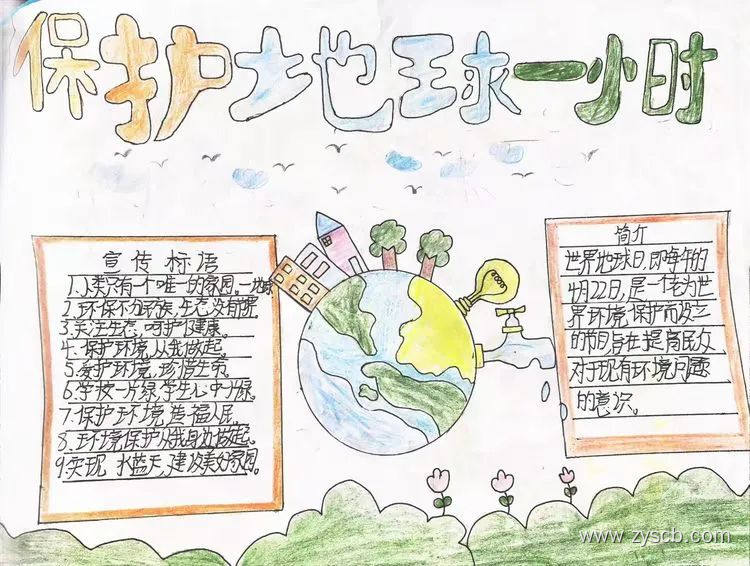 保护地球一小时
宣传标语
1.人类只有一个唯一的家园,—地球
2.环保不分民族,生态没有国界
3.关注生态,呵护健康。
4.保护环境,从我做起。
5.爱护环境,珍惜生命。
6.学校一片绿,学生心中一片绿。
7.保护环境,造福人民。
8.环境保护从我身边做起。
9.实现 水蓝天,建设美好家园。
简介
世界地球日,即每年的
4月22日,是一个专为世
界环境保护而设立
的节日旨在提高民众
对于现有环境问题
的意识。
www.zyscb.com